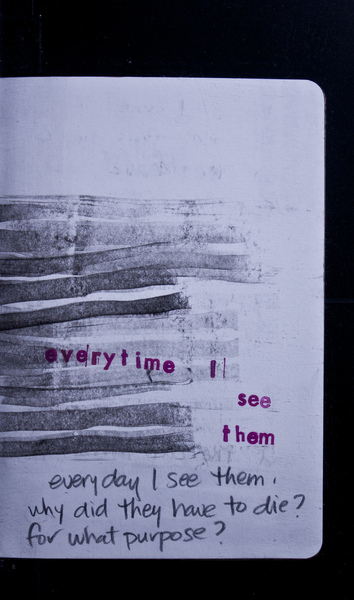 everytime I
see
them
everyday I see them.
why did they have to die?
for what purpose?